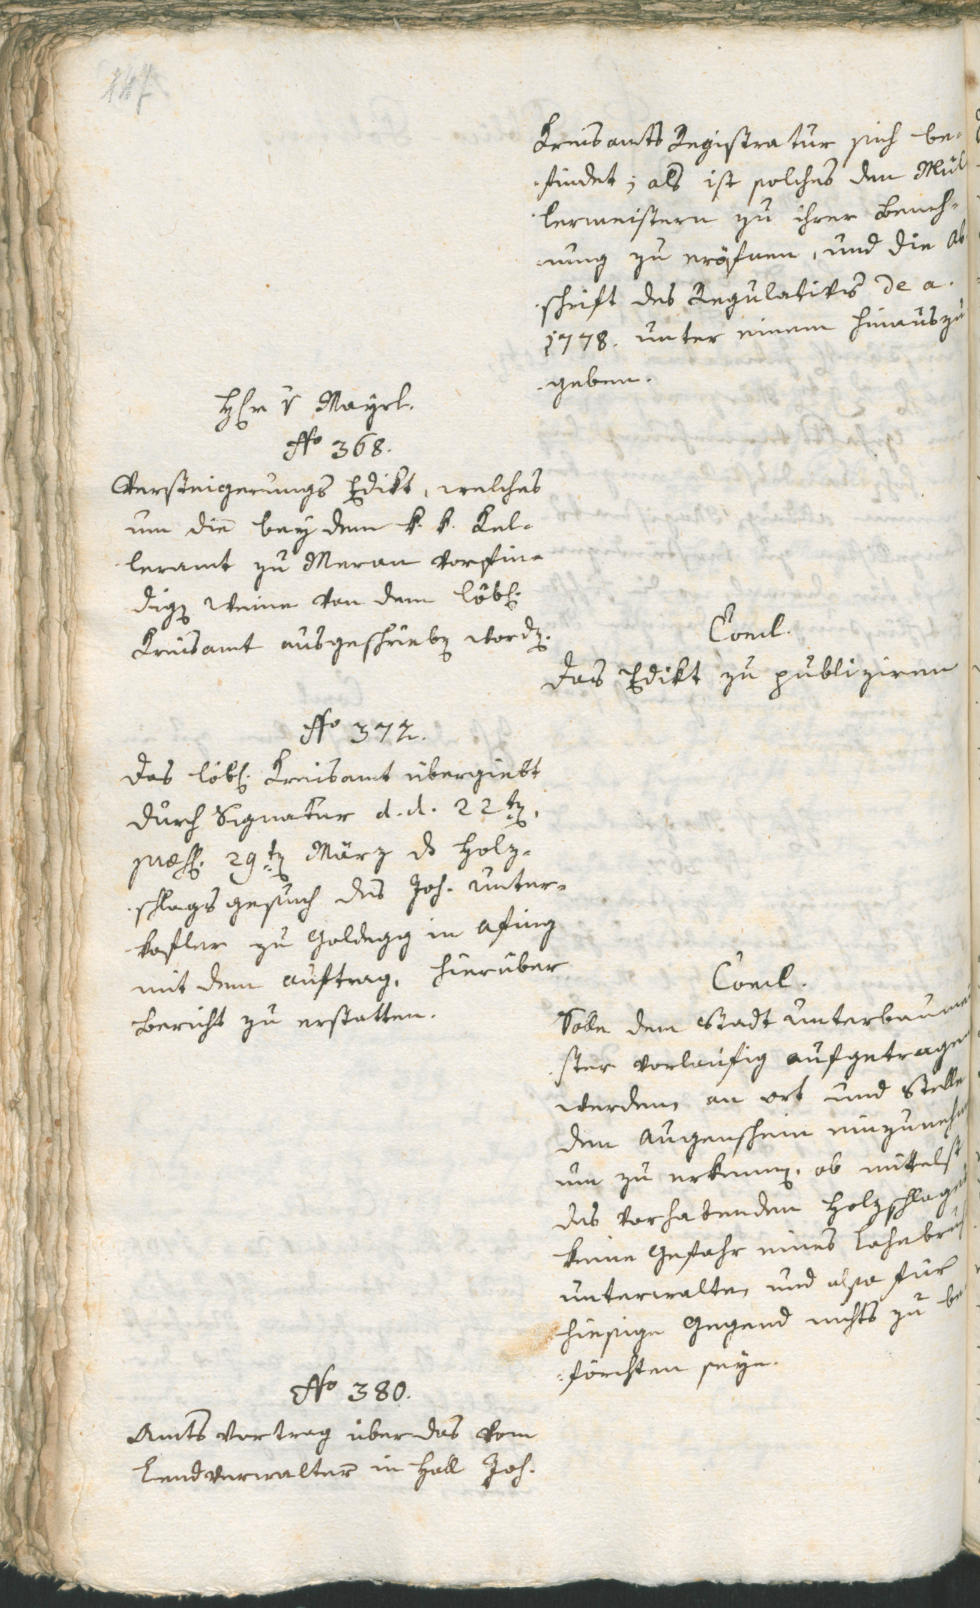 147
Kreisamts Registratur sich be-
findet; als ist solches den Mül
lermeistern zu ihrer Beneh-
mung zu eröfnen, und die Ab
schrift des Regulativs de a.
1778. unter einem hinauszu
geben.
Hr v Mayrl.
No 368.
Versteigerungs Edikt, welches
um die bey dem k. k. Kel-
leramt zu Meran vorfin-
dige Weine von dem löbl.
Kreisamt ausgeschrieben worden.
Concl.
Das Edikt zu publiziren
No 372.
Das löbl. Kreisamt übergiebt
durch Signatur d. d. 22ten,
præs. 29ten März das Holz-
schlags gesuch des Joh. Unter-
kofler zu Goldegg in Afing
mit dem Auftrag, hierüber
Bericht zu erstatten.
Concl.
Solle dem Stadt Unterbaumei
ster vorläufig aufgetragen
werden, an ort und Stelle
den Augenschein einzunehmen
um zu erkennen, ob mittelst
des vorhabenden Holzschlages
keine Gefahr eines Lahnbruch
unterwalte, und also für
hiesige Gegend nichts zu be
förchten seye.
No 380.
Amts Vortrag über das vom
Lendverwalter in Hall Joh.